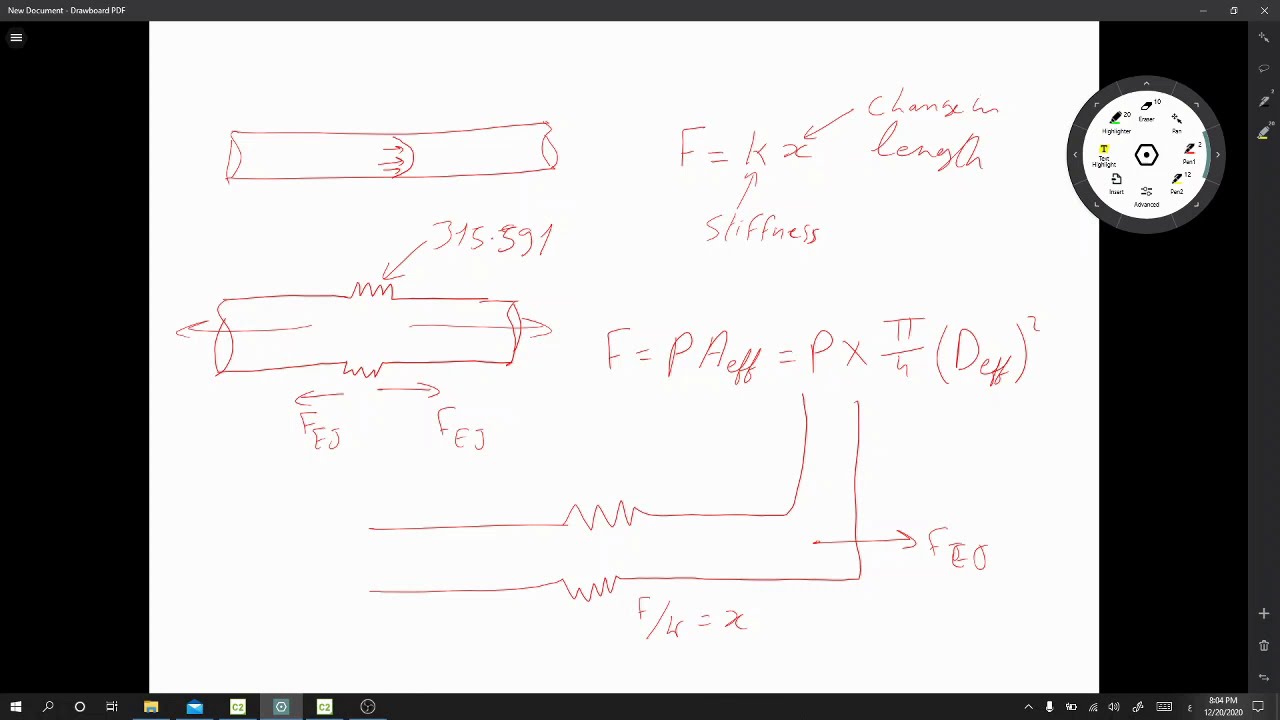 New Document - Drawboard PDF
F = k x
change in
length
stiffness
315.591
F = P A eff = P x π/4 (D eff)²
F EJ
F EJ
F EJ
F/k = x
20
Highlighter
10
Eraser
Pan
T
Text
Highlight
2
Pen1
Insert
12
Pen2
Advanced
2
20
C2
C2
8:04 PM
12/20/2020